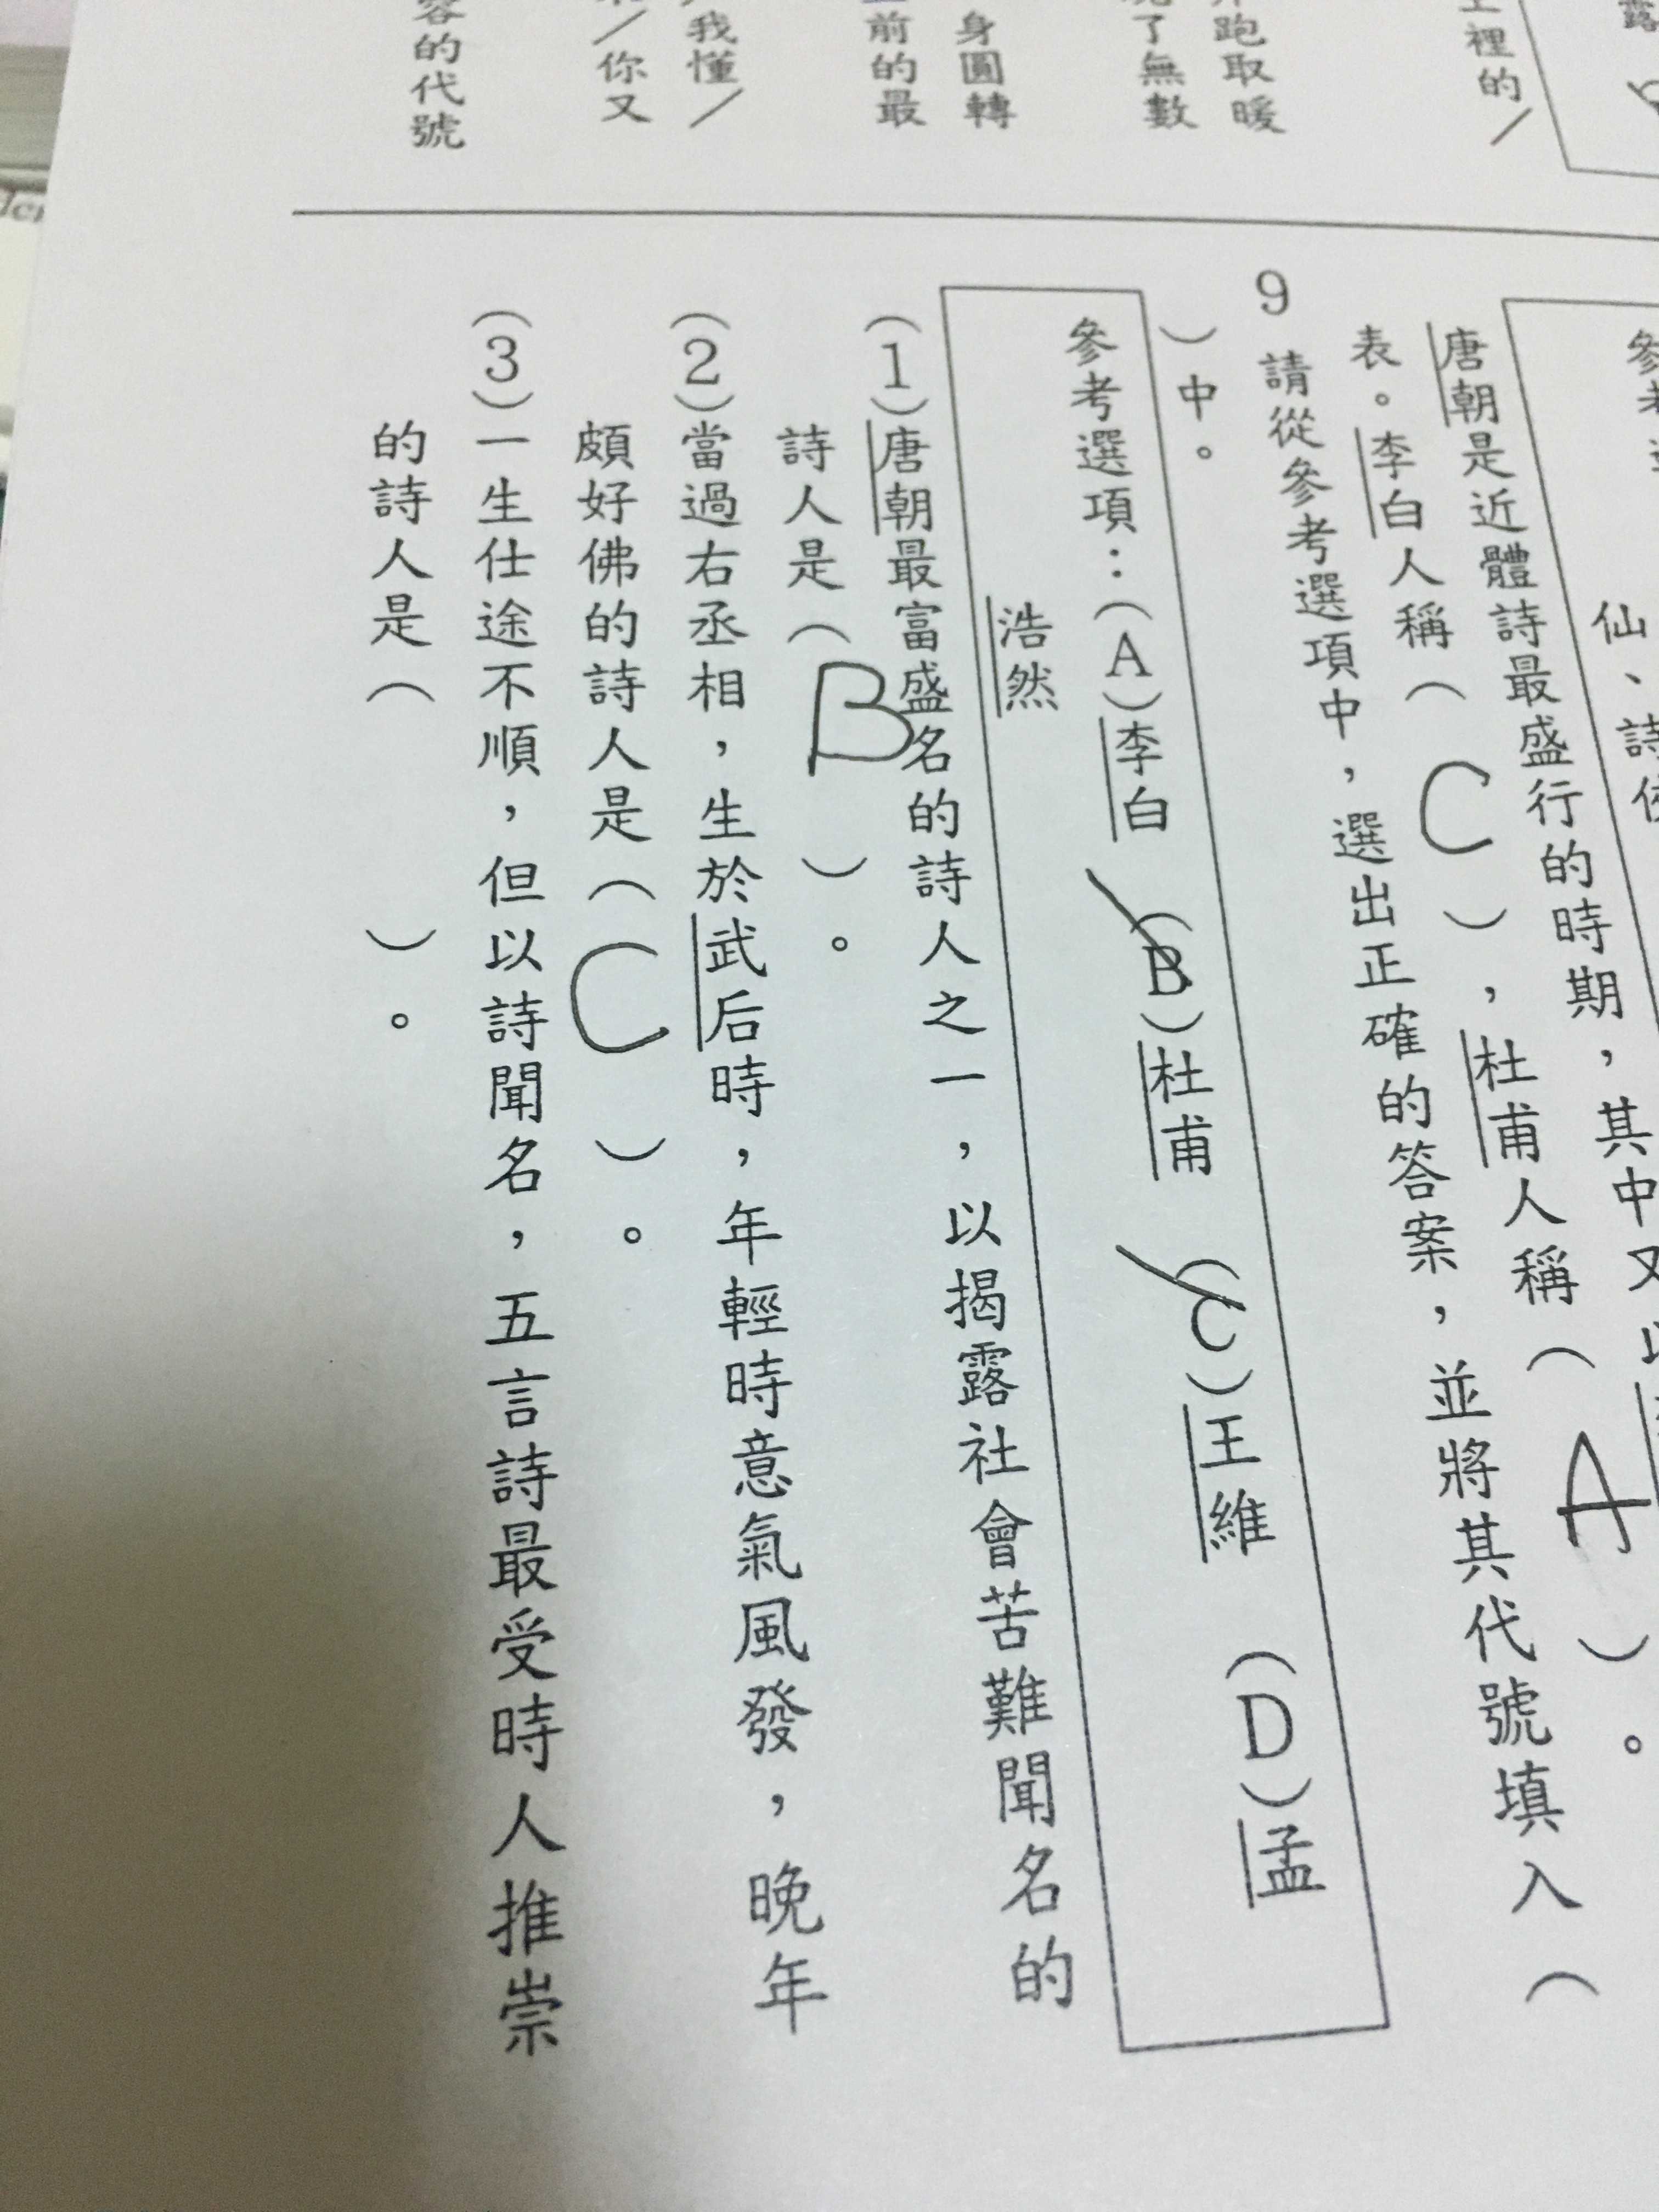 仙、詩
唐朝是近體詩最盛行的時期，其中又以
表。李白人稱（C），杜甫人稱（A）。
9 請從參考選項中，選出正確的答案，並將其代號填入（
）中。
參考選項：（A）李白 （B）杜甫 （C）王維 （D）孟
浩然
（1）唐朝最富盛名的詩人之一，以揭露社會苦難聞名的
詩人是（B）。
（2）當過右丞相，生於武后時，年輕時意氣風發，晚年
頗好佛的詩人是（C）。
（3）一生仕途不順，但以詩聞名，五言詩最受時人推崇
的詩人是（ ）。
上裡的／
跑取暖
了無數
身圓轉
前的最
我懂／
／你又
容的代號